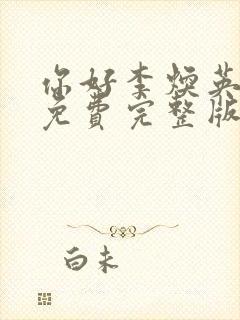 你好李焕英
免費完整版
白未